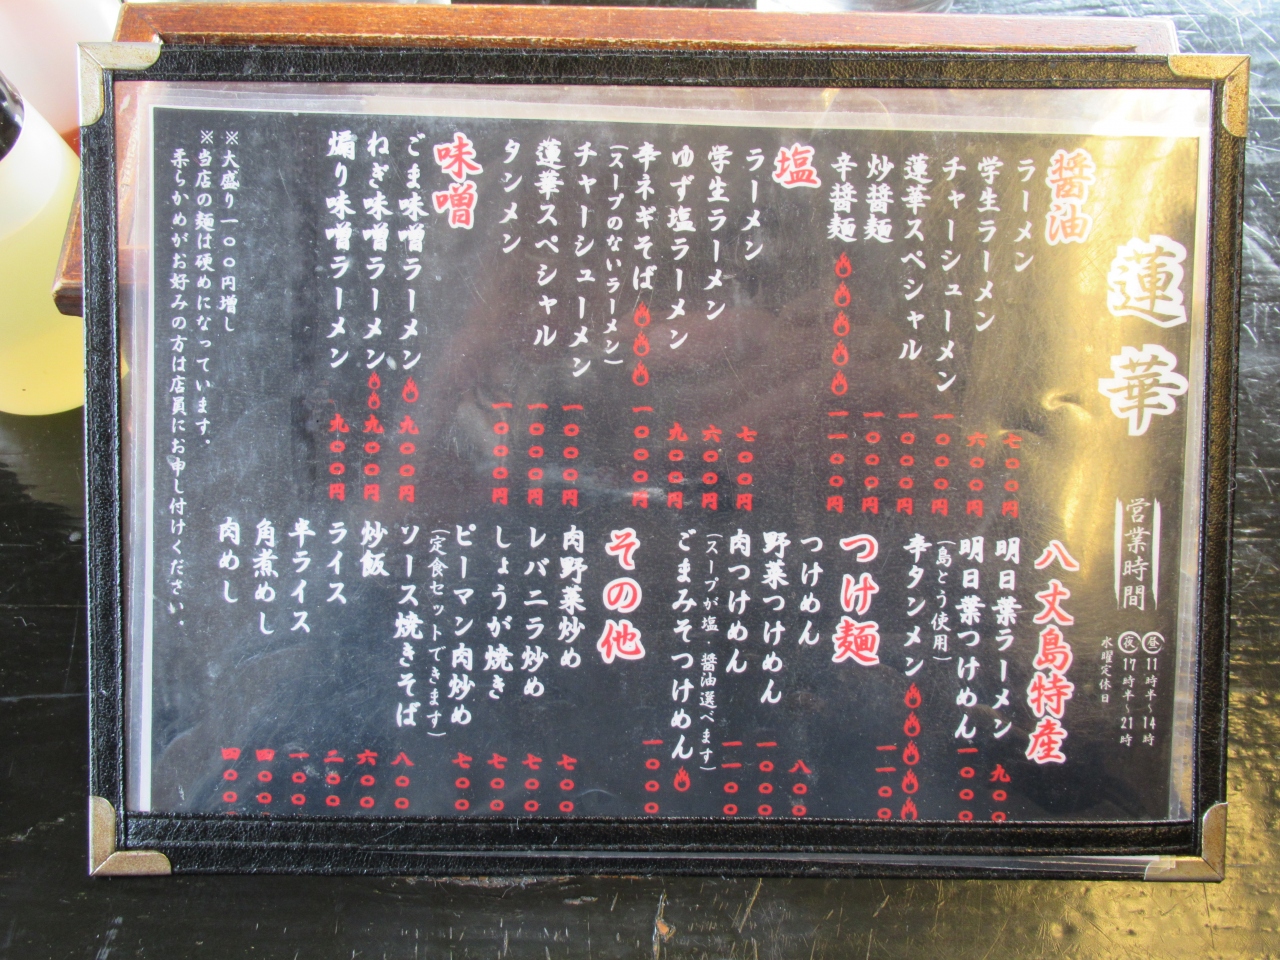 蓮華
営業時間
昼 11時半~14時
夜 17時半~21時
水曜定休日
醤油
ラーメン 七〇〇円
学生ラーメン 六〇〇円
チャーシューメン 一〇〇〇円
蓮華スペシャル 一〇〇〇円
炒醤麺 一〇〇〇円
辛醤麺 一一〇〇円
塩
ラーメン 七〇〇円
学生ラーメン 六〇〇円
ゆず塩ラーメン 九〇〇円
辛ネギそば 一〇〇〇円
(スープのないラーメン)
チャーシューメン 一〇〇〇円
蓮華スペシャル 一〇〇〇円
タンメン 一〇〇〇円
味噌
ごま味噌ラーメン 九〇〇円
ねぎ味噌ラーメン 九〇〇円
煽り味噌ラーメン 九〇〇円
※大盛り一〇〇円増し
※当店の麺は硬めになっています。
柔らかめがお好みの方は店員にお申し付けください。
八丈島特産
明日葉ラーメン 九〇〇
明日葉つけめん 一〇〇〇
(島とう使用)
辛タンメン 一一〇〇
つけ麺
つけめん 八〇〇
野菜つけめん 一〇〇〇
肉つけめん 一一〇〇
(スープが塩 醤油選べます)
ごまみそつけめん 一〇〇〇
その他
肉野菜炒め 七〇〇
レバニラ炒め 七〇〇
しょうが焼き 七〇〇
ピーマン肉炒め 七〇〇
(定食セットできます)
ソース焼きそば 八〇〇
炒飯 六〇〇
ライス 二〇〇
半ライス 一〇〇
角煮めし 四〇〇
肉めし 四〇〇